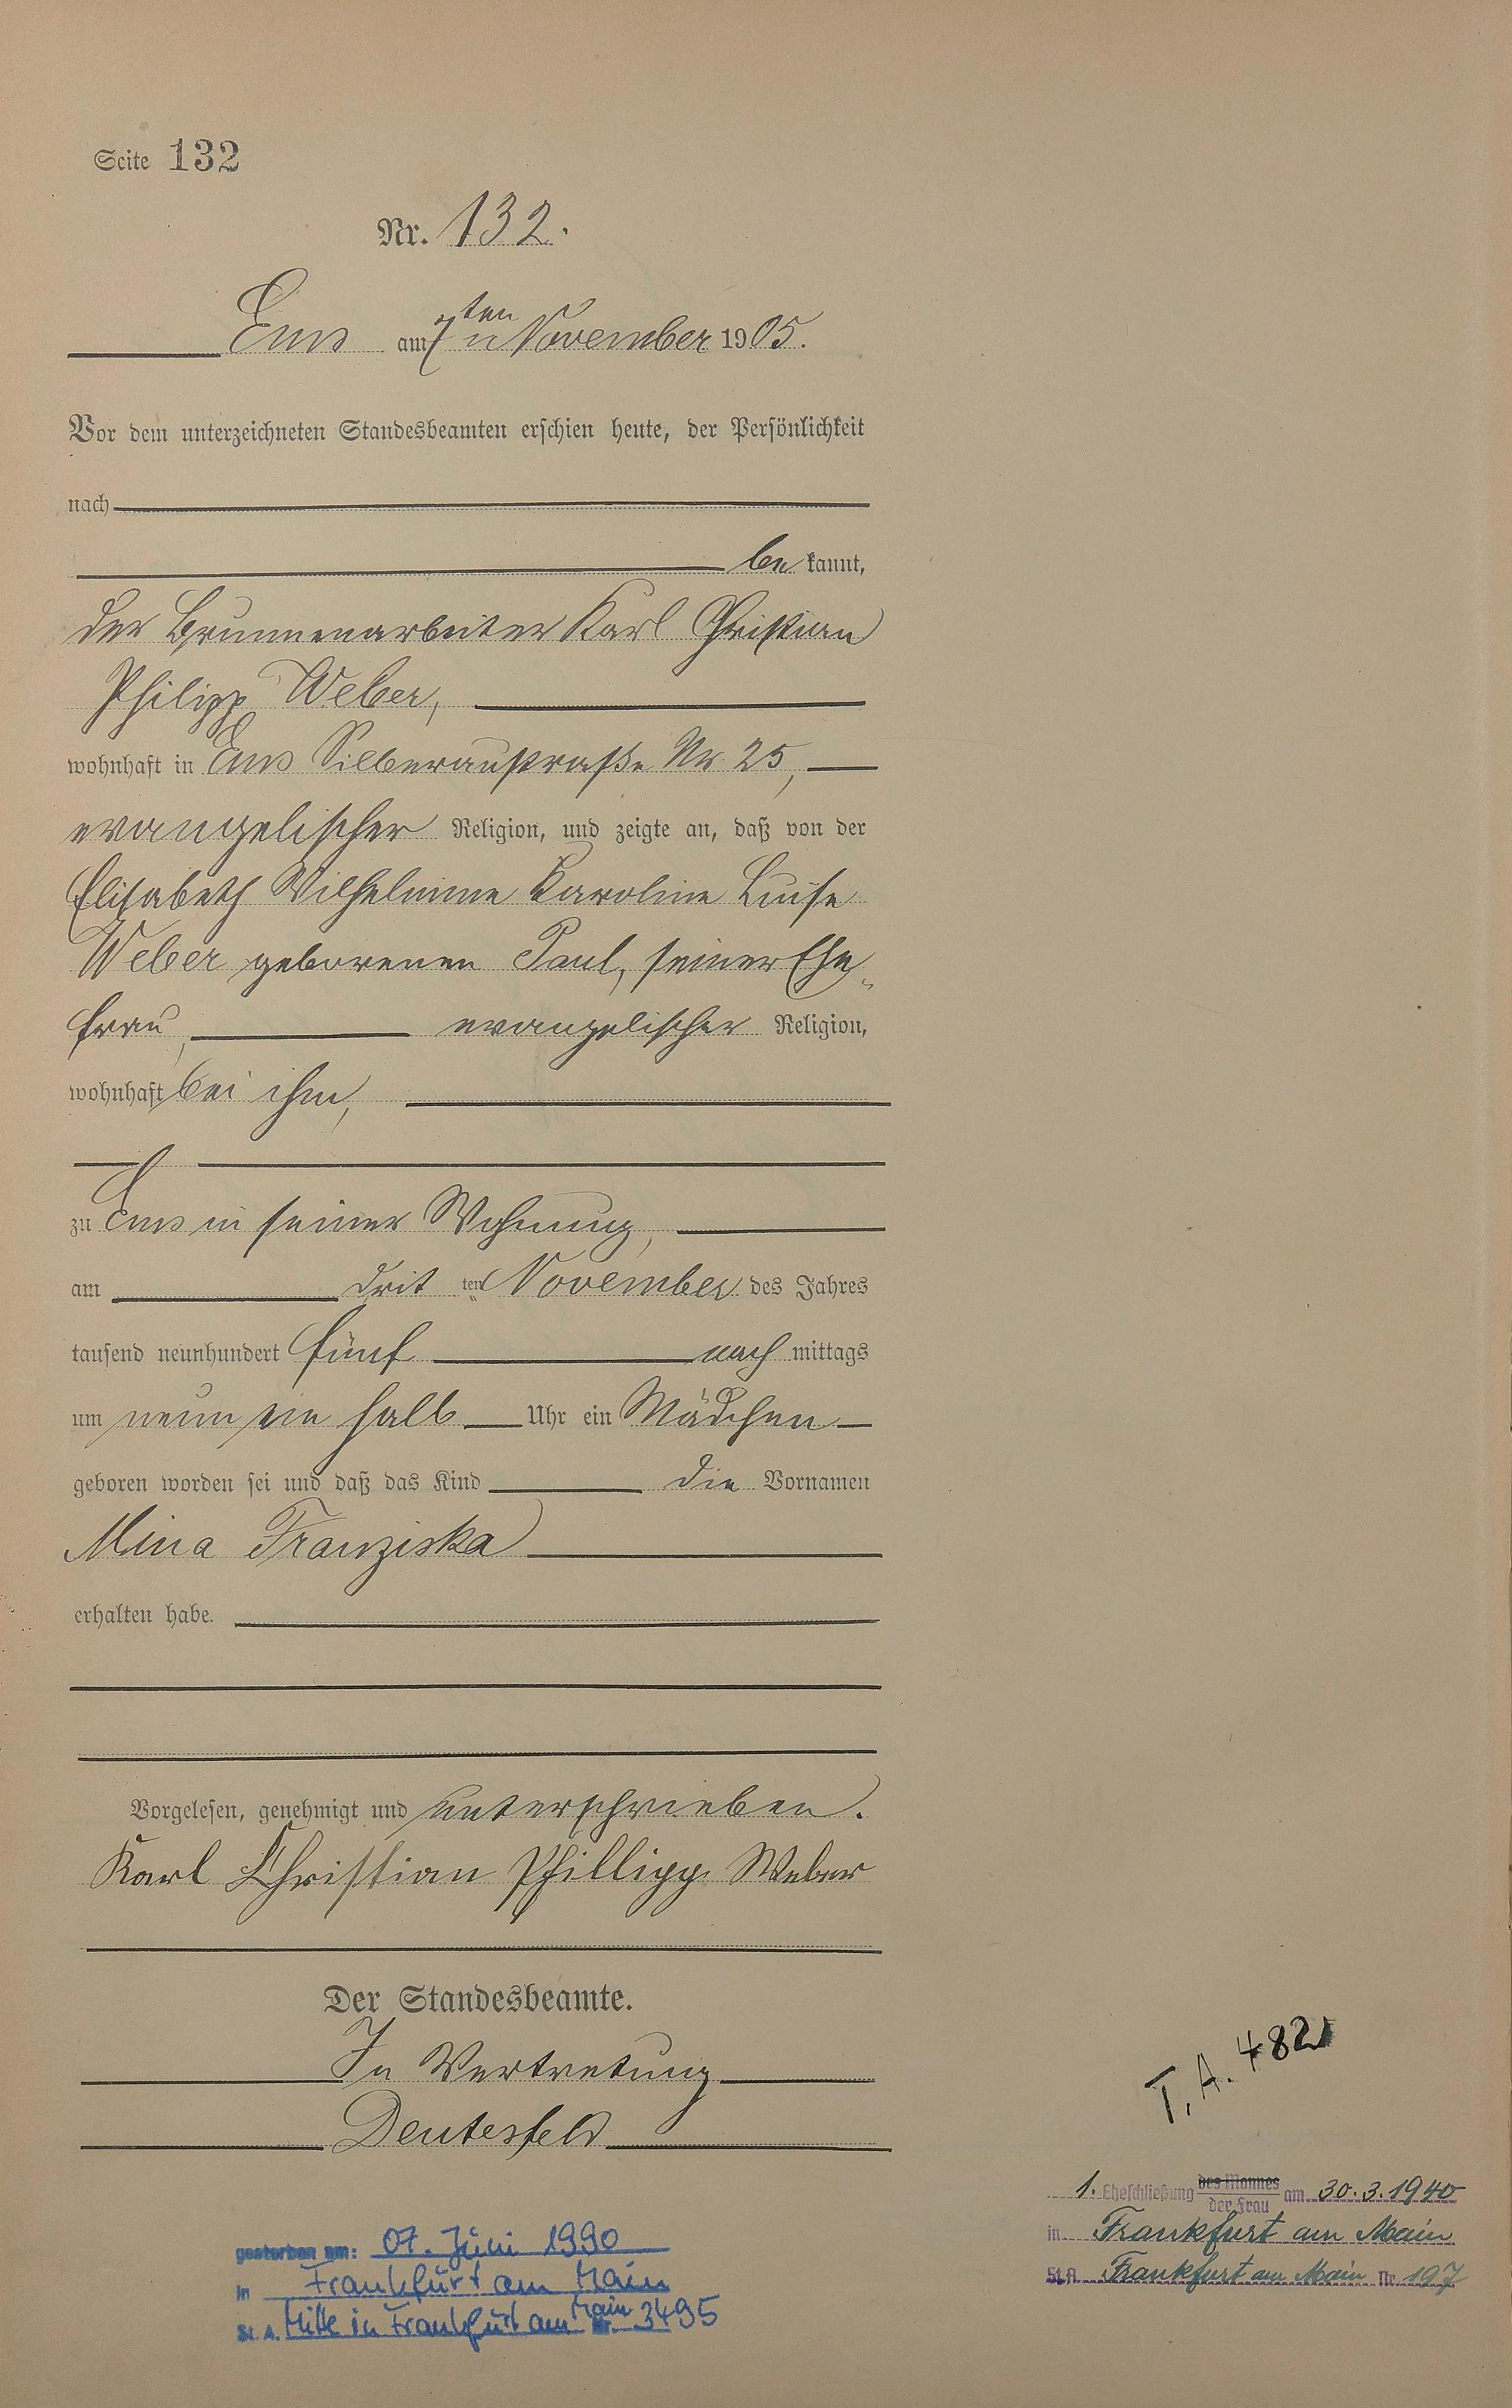 Seite 132
Nr. 132.
Ems am 7ten November 1905.
Vor dem unterzeichneten Standesbeamten erschien heute, der Persönlichkeit
nach
be kannt,
der Brunnenarbeiter Karl Christian
Philipp Weber,
wohnhaft in Ems Silberaustraße Nr. 25,
evangelischer Religion, und zeigte an, daß von der
Elisabeth Wilhelmine Karoline Luise
Weber geborenen Paul, seiner Ehe-
frau, evangelischer Religion,
wohnhaft bei ihm,
zu Ems in seiner Wohnung,
am drit ten November des Jahres
tausend neunhundert fünf nach mittags
um neun ein halb Uhr ein Mädchen
geboren worden sei und daß das Kind die Vornamen
Mina Franziska
erhalten habe.
Vorgelesen, genehmigt und unterschrieben.
Karl Christian Phillipp Weber
Der Standesbeamte.
In Vertretung
Deutesfeld
T. A. 482
1. Eheschließung des Mannes der Frau am 30.3.1940
in Frankfurt am Main
St.A. Frankfurt am Main Nr. 197
gestorben am: 07. Juni 1990
in Frankfurt am Main
St. A. Mitte in Frankfurt am Main Nr. 3495